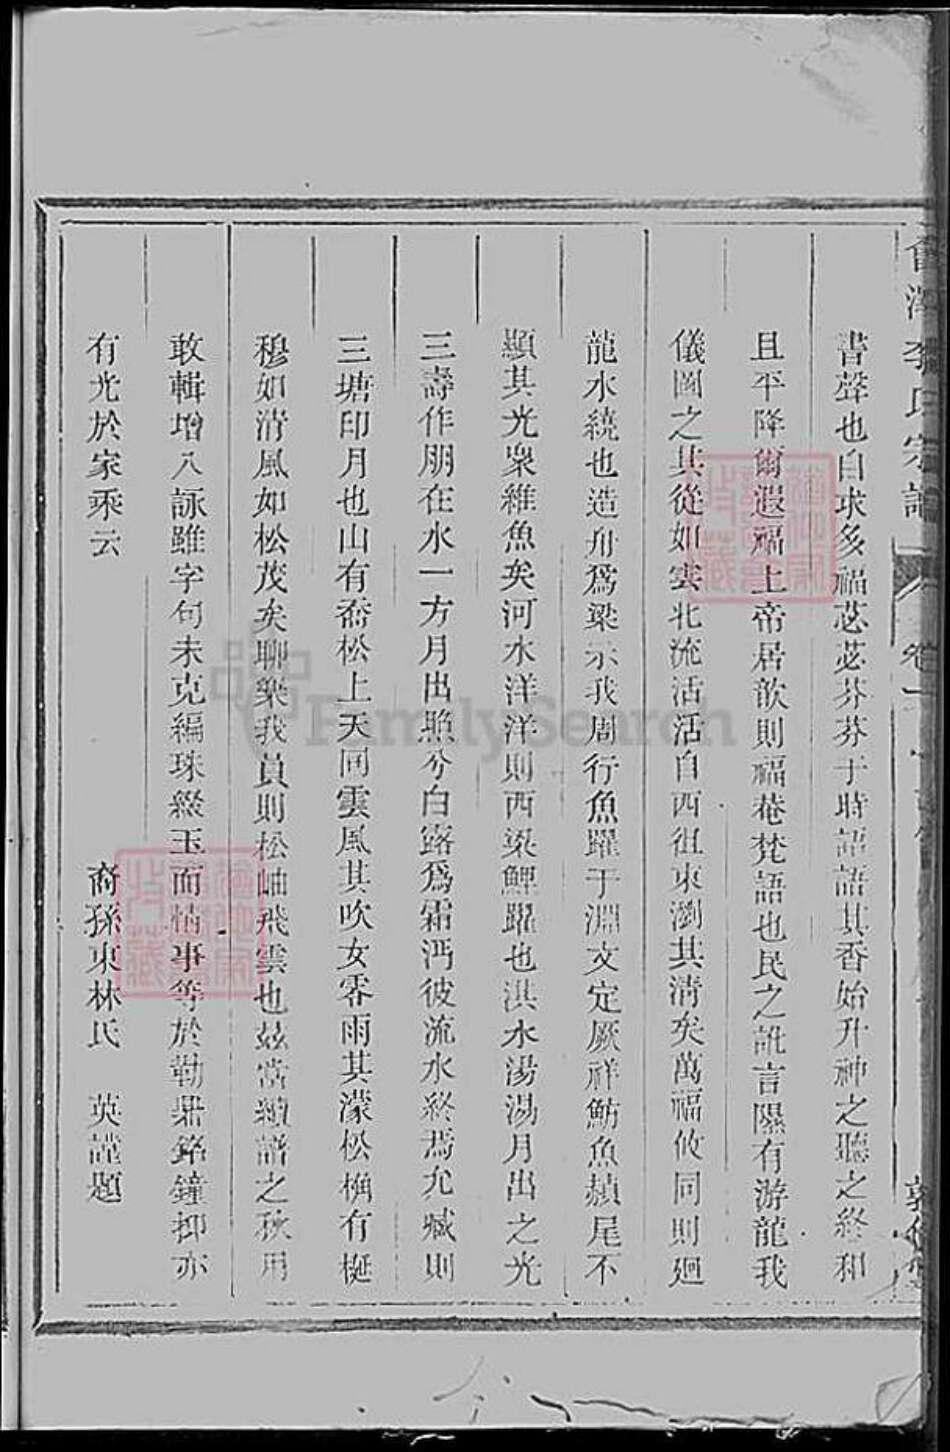 李氏宗譜
卷一
書聲也自求多福苾苾芬芬于時語語其香始升神之聽之終和
且平降爾遐福上帝居歆則福菴梵語也民之訛言隰有游龍我
儀圖之其從如雲北流活活自西徂東瀏其清矣萬福攸同則廻
龍水繞也造舟爲梁示我周行魚躍于淵文定厥祥魴魚赬尾不
顯其光眾維魚矣河水洋洋則西梁鯉躍也淇水湯湯月出之光
三壽作朋在水一方月出照兮白露爲霜沔彼流水終焉允臧則
三塘印月也山有喬松上天同雲風其吹女零雨其濛松桷有梴
穆如清風如松茂矣聊樂我員則松岫飛雲也茲當續譜之秋用
敢輯增八詠雖字句未克編珠綴玉而情事等於勒鼎銘鐘抑亦
有光於家乘云
裔孫東林氏 英謹題
FamilySearch